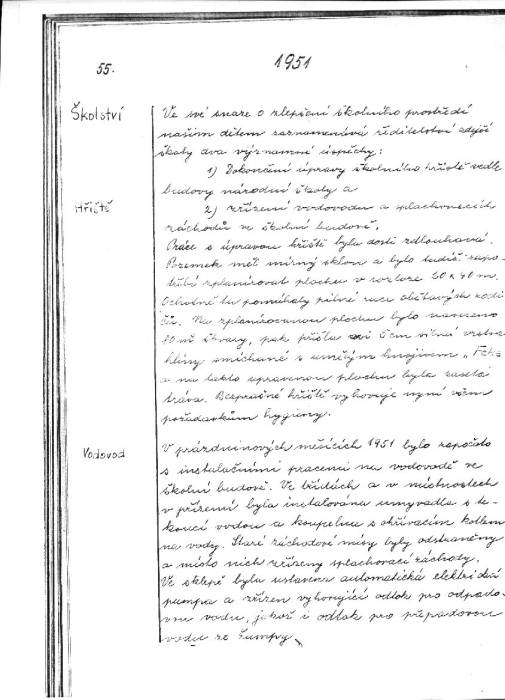 55.
1951
Školství
Ve své snaze o zlepšení školního prostředí
našim dětem zaznamenává ředitelství zdejší
školy dva významné úspěchy:
1) Dokončení úpravy školního hřiště vedle
budovy národní školy a
Hřiště
2) zřízení vodovodu a splachovacích
záchodů ve školní budově.
Práce s úpravou hřiště byla dosti zdlouhavá.
Pozemek měl mírný sklon a bylo tudíž zapo-
třebí zplanírovat plochu v rozloze 20 x 40 m.
Ochotně tu pomáhaly pilné ruce obětavých rodi-
čů. Na zplanírovanou plochu bylo navezeno
80 m³ škváry, pak přišla asi 5 cm silná vrstva
hlíny smíchané s umělým hnojivem „
a na takto upravenou plochu byla zaseta
tráva. Bezprašné hřiště vyhovuje nyní všem
požadavkům hygieny.
Vodovod
V prázdninových měsících 1951 bylo započato
s instalačními pracemi na vodovodě ve
školní budově. Ve třídách a v místnostech
v přízemí byla instalována umyvadla s te-
koucí vodou a koupelna s ohřívacím kotlem
na vodu. Staré záchodové mísy byly odstraněny
a místo nich zřízeny splachovací záchody.
Ve sklepě byla ustavena automatická elektrická
pumpa a zřízen vyhovující odtok pro odpado-
vou vodu, jakož i odtok pro přepadovou
vodu ze žumpy.